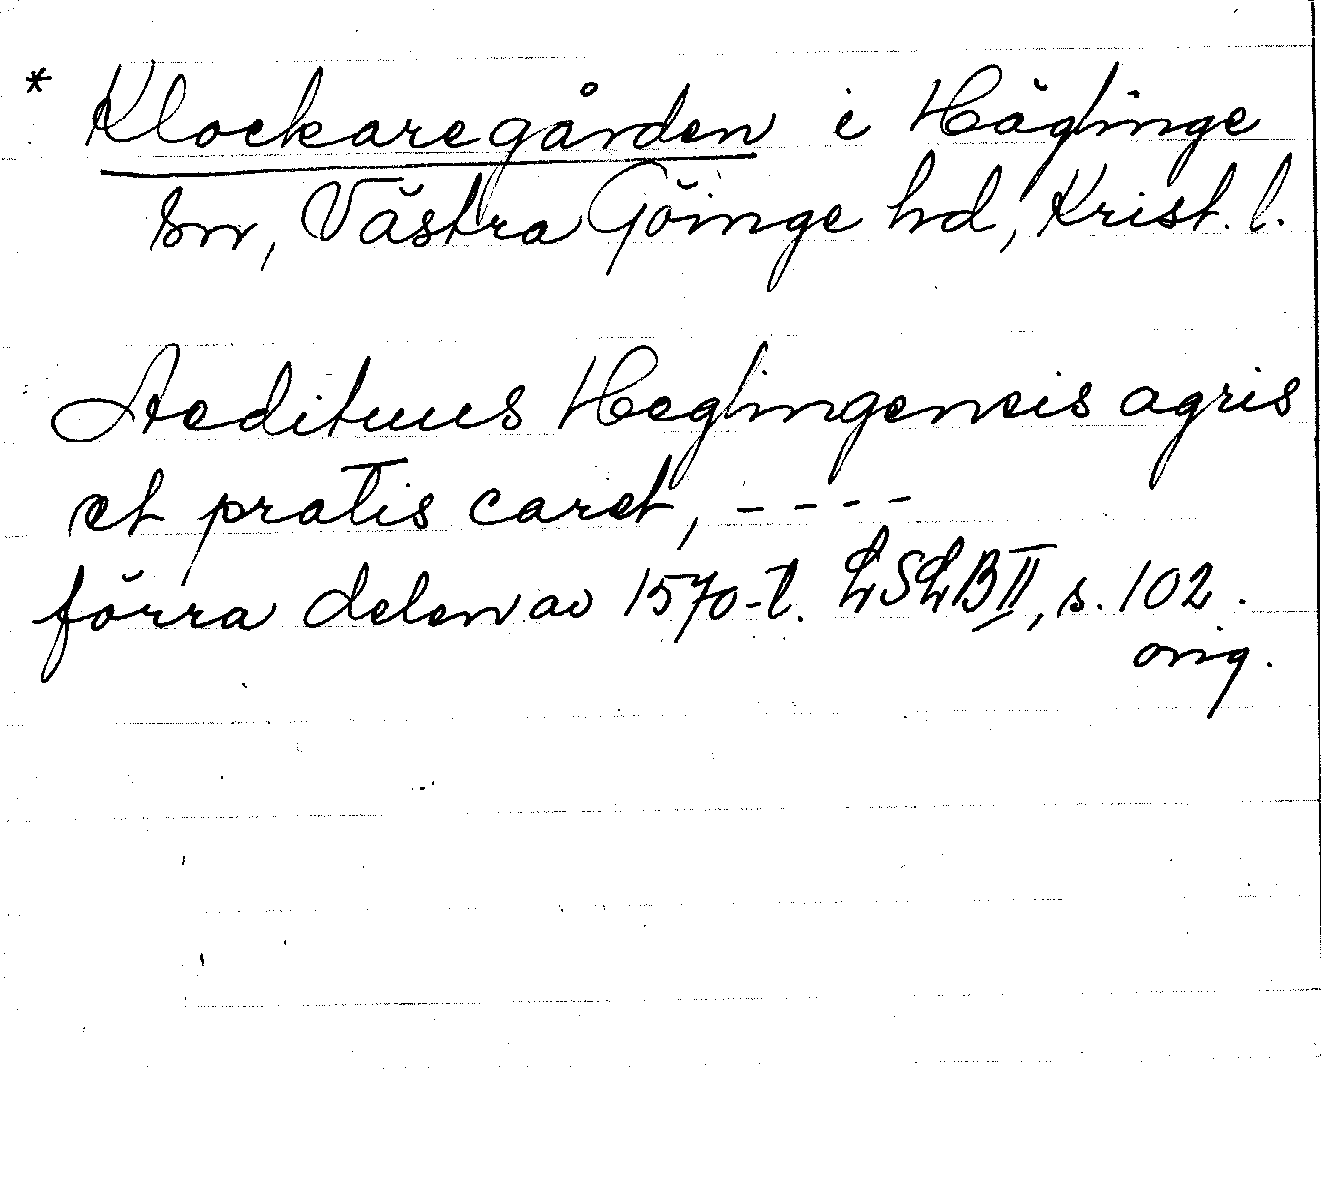 * Klockaregården i Häglinge
sn, Västra Göinge hd, Krist. l.
Aedituus Heglingensis agris
et pratis caret, - - - -
förra delen av 1570-t. LSLB II, s. 102.
orig.